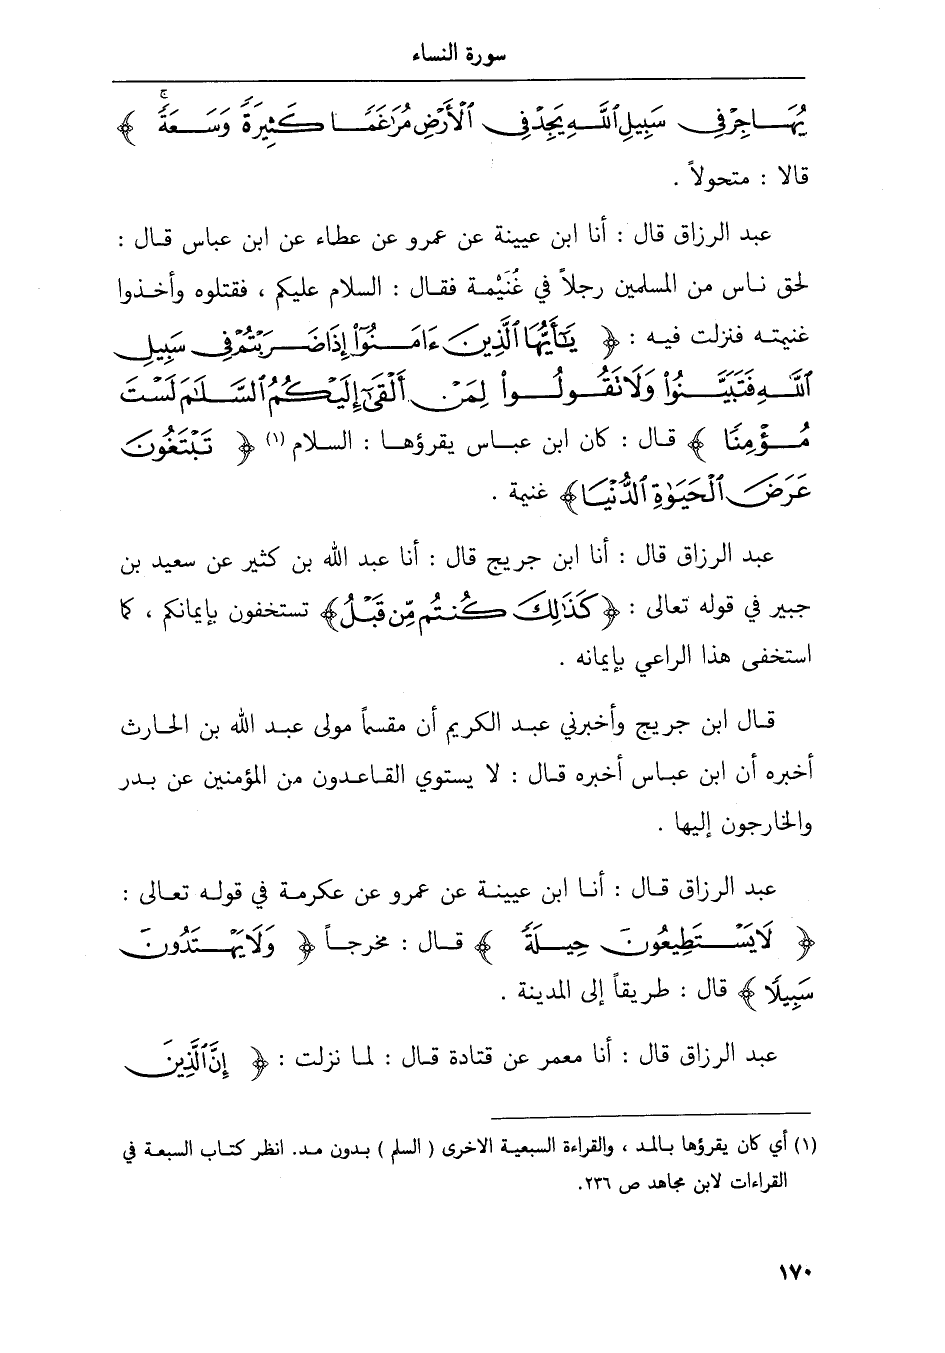 سورة النساء
يُهَاجِرْ فِي سَبِيلِ ٱللَّهِ يَجِدْ فِي ٱلْأَرْضِ مُرَٰغَمًا كَثِيرَةً وَسَعَةً ۚ ﴾
قالا : متحولاً .
عبد الرزاق قال : أنا ابن عيينة عن عمرو عن عطاء عن ابن عباس قال :
لحق ناس من المسلمين رجلاً في غُنَيْمة فقال : السلام عليكم ، فقتلوه وأخذوا
غنيمته فنزلت فيه : ﴿ يَٰٓأَيُّهَا ٱلَّذِينَ ءَامَنُوٓا۟ إِذَا ضَرَبْتُمْ فِي سَبِيلِ
ٱللَّهِ فَتَبَيَّنُوا۟ وَلَا تَقُولُوا۟ لِمَنْ أَلْقَىٰٓ إِلَيْكُمُ ٱلسَّلَٰمَ لَسْتَ
مُؤْمِنًا ﴾ قال : كان ابن عباس يقرؤها : السلام (١) ﴿ تَبْتَغُونَ
عَرَضَ ٱلْحَيَوٰةِ ٱلدُّنْيَا ﴾ غنيمة .
عبد الرزاق قال : أنا ابن جريج قال : أنا عبد الله بن كثير عن سعيد بن
جبير في قوله تعالى : ﴿ كَذَٰلِكَ كُنتُم مِّن قَبْلُ ﴾ تستخفون بإيمانكم ، كما
استخفى هذا الراعي بإيمانه .
قال ابن جريج وأخبرني عبد الكريم أن مقسماً مولى عبد الله بن الحارث
أخبره أن ابن عباس أخبره قال : لا يستوي القاعدون من المؤمنين عن بدر
والخارجون إليها .
عبد الرزاق قال : أنا ابن عيينة عن عمرو عن عكرمة في قوله تعالى :
﴿ لَا يَسْتَطِيعُونَ حِيلَةً ﴾ قال : مخرجاً ﴿ وَلَا يَهْتَدُونَ
سَبِيلًا ﴾ قال : طريقاً إلى المدينة .
عبد الرزاق قال : أنا معمر عن قتادة قال : لما نزلت : ﴿ إِنَّ ٱلَّذِينَ
(١) أي كان يقرؤها بالمد ، والقراءة السبعية الاخرى ( السلم ) بدون مد. انظر كتاب السبعة في
القراءات لابن مجاهد ص ٢٣٦.
١٧٠